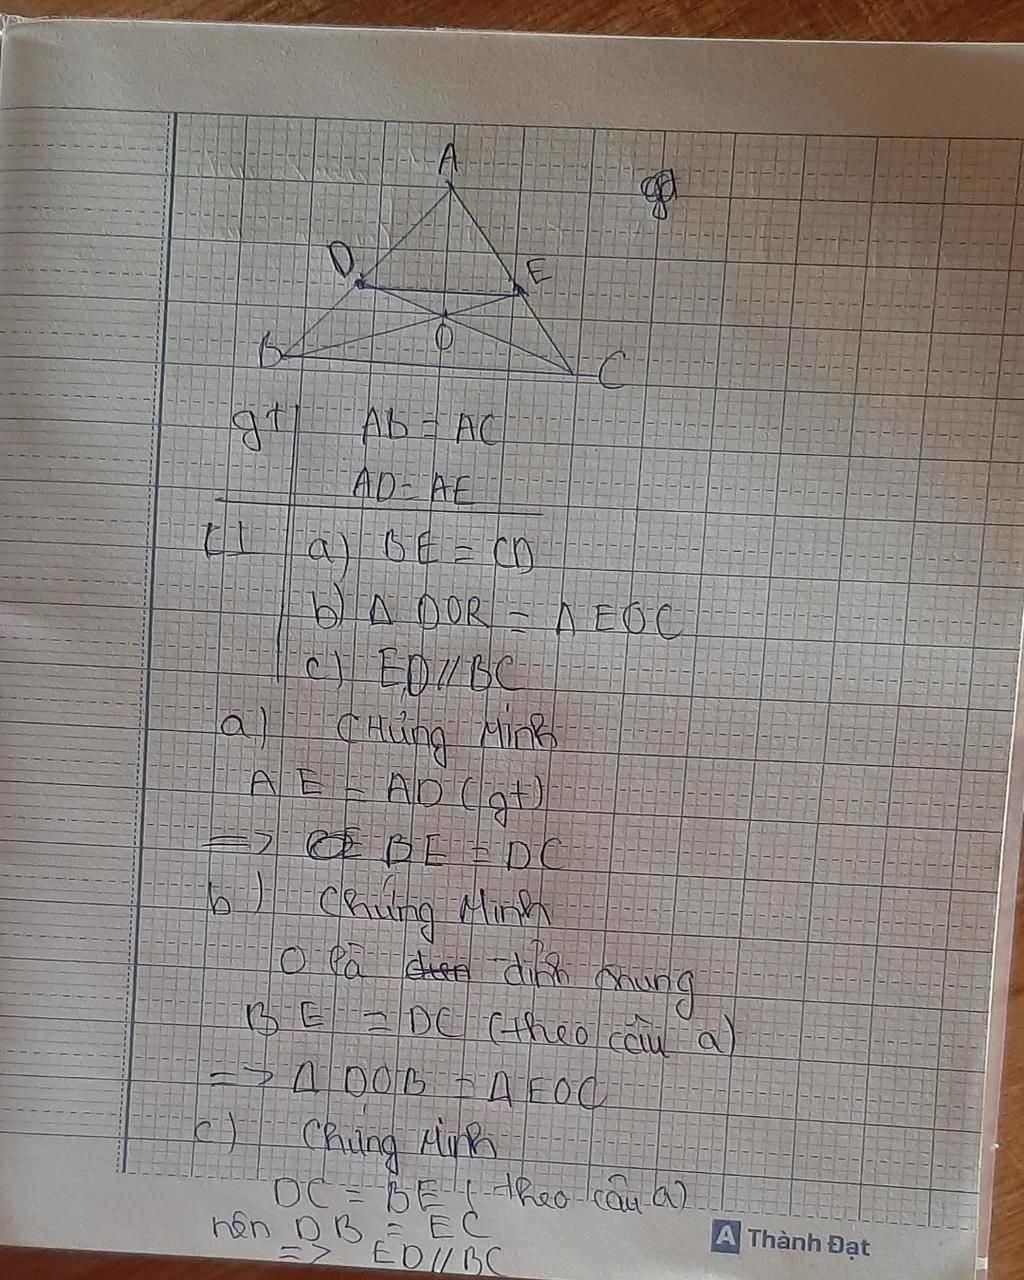 A
D
E
O
B
C
gt AB = AC
AD = AE
KL a) BE = CD
b) Δ DOB = Δ EOC
c) ED // BC
a) Chứng Minh
AE = AD (gt)
=> BE = DC
b) Chứng Minh
O là đỉnh chung
BE = DC (theo câu a)
=> Δ DOB = Δ EOC
c) Chứng Minh
DC = BE ( theo câu a)
nên DB = EC
=> ED // BC
A Thành Đạt